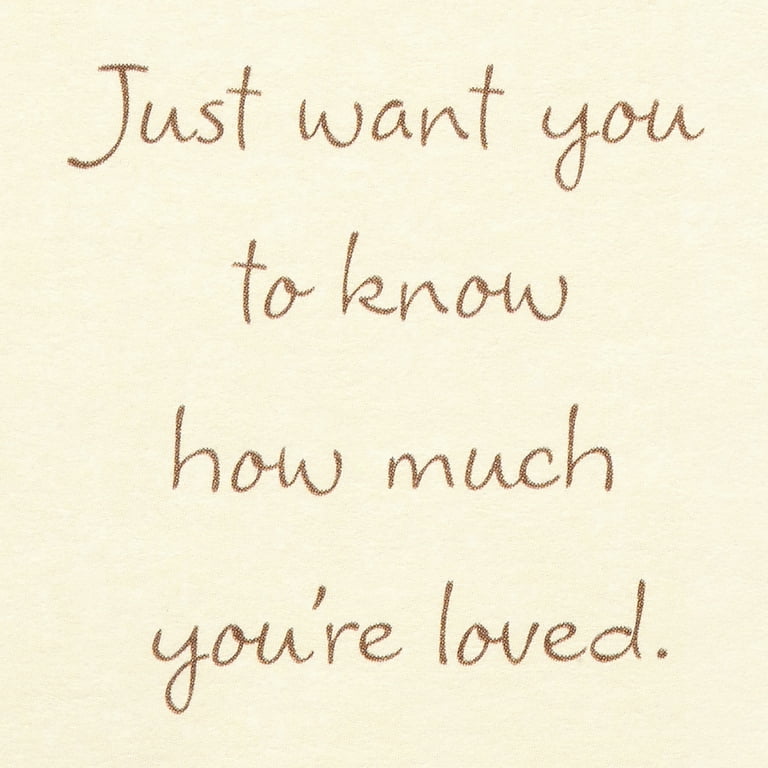 Just want you
to know
how much
you're loved.